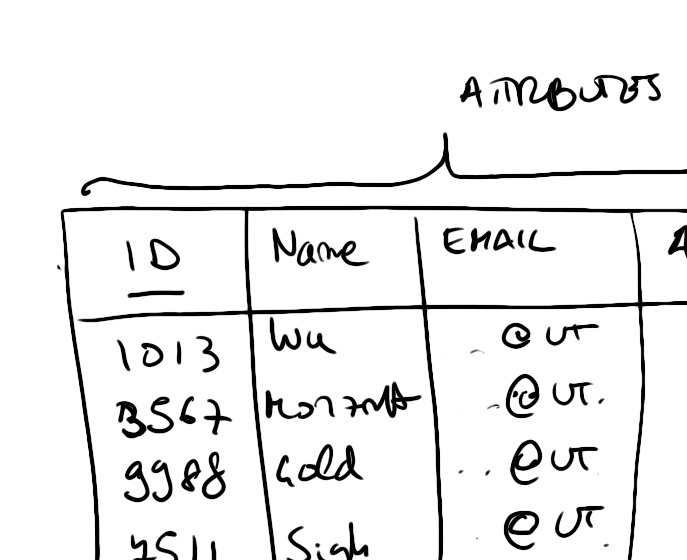 ATTRIBUTES
ID Name EMAIL A
1013 Wu - @ UT
3567 - @ UT.
9988 Gold .. @UT
7511 @ UT